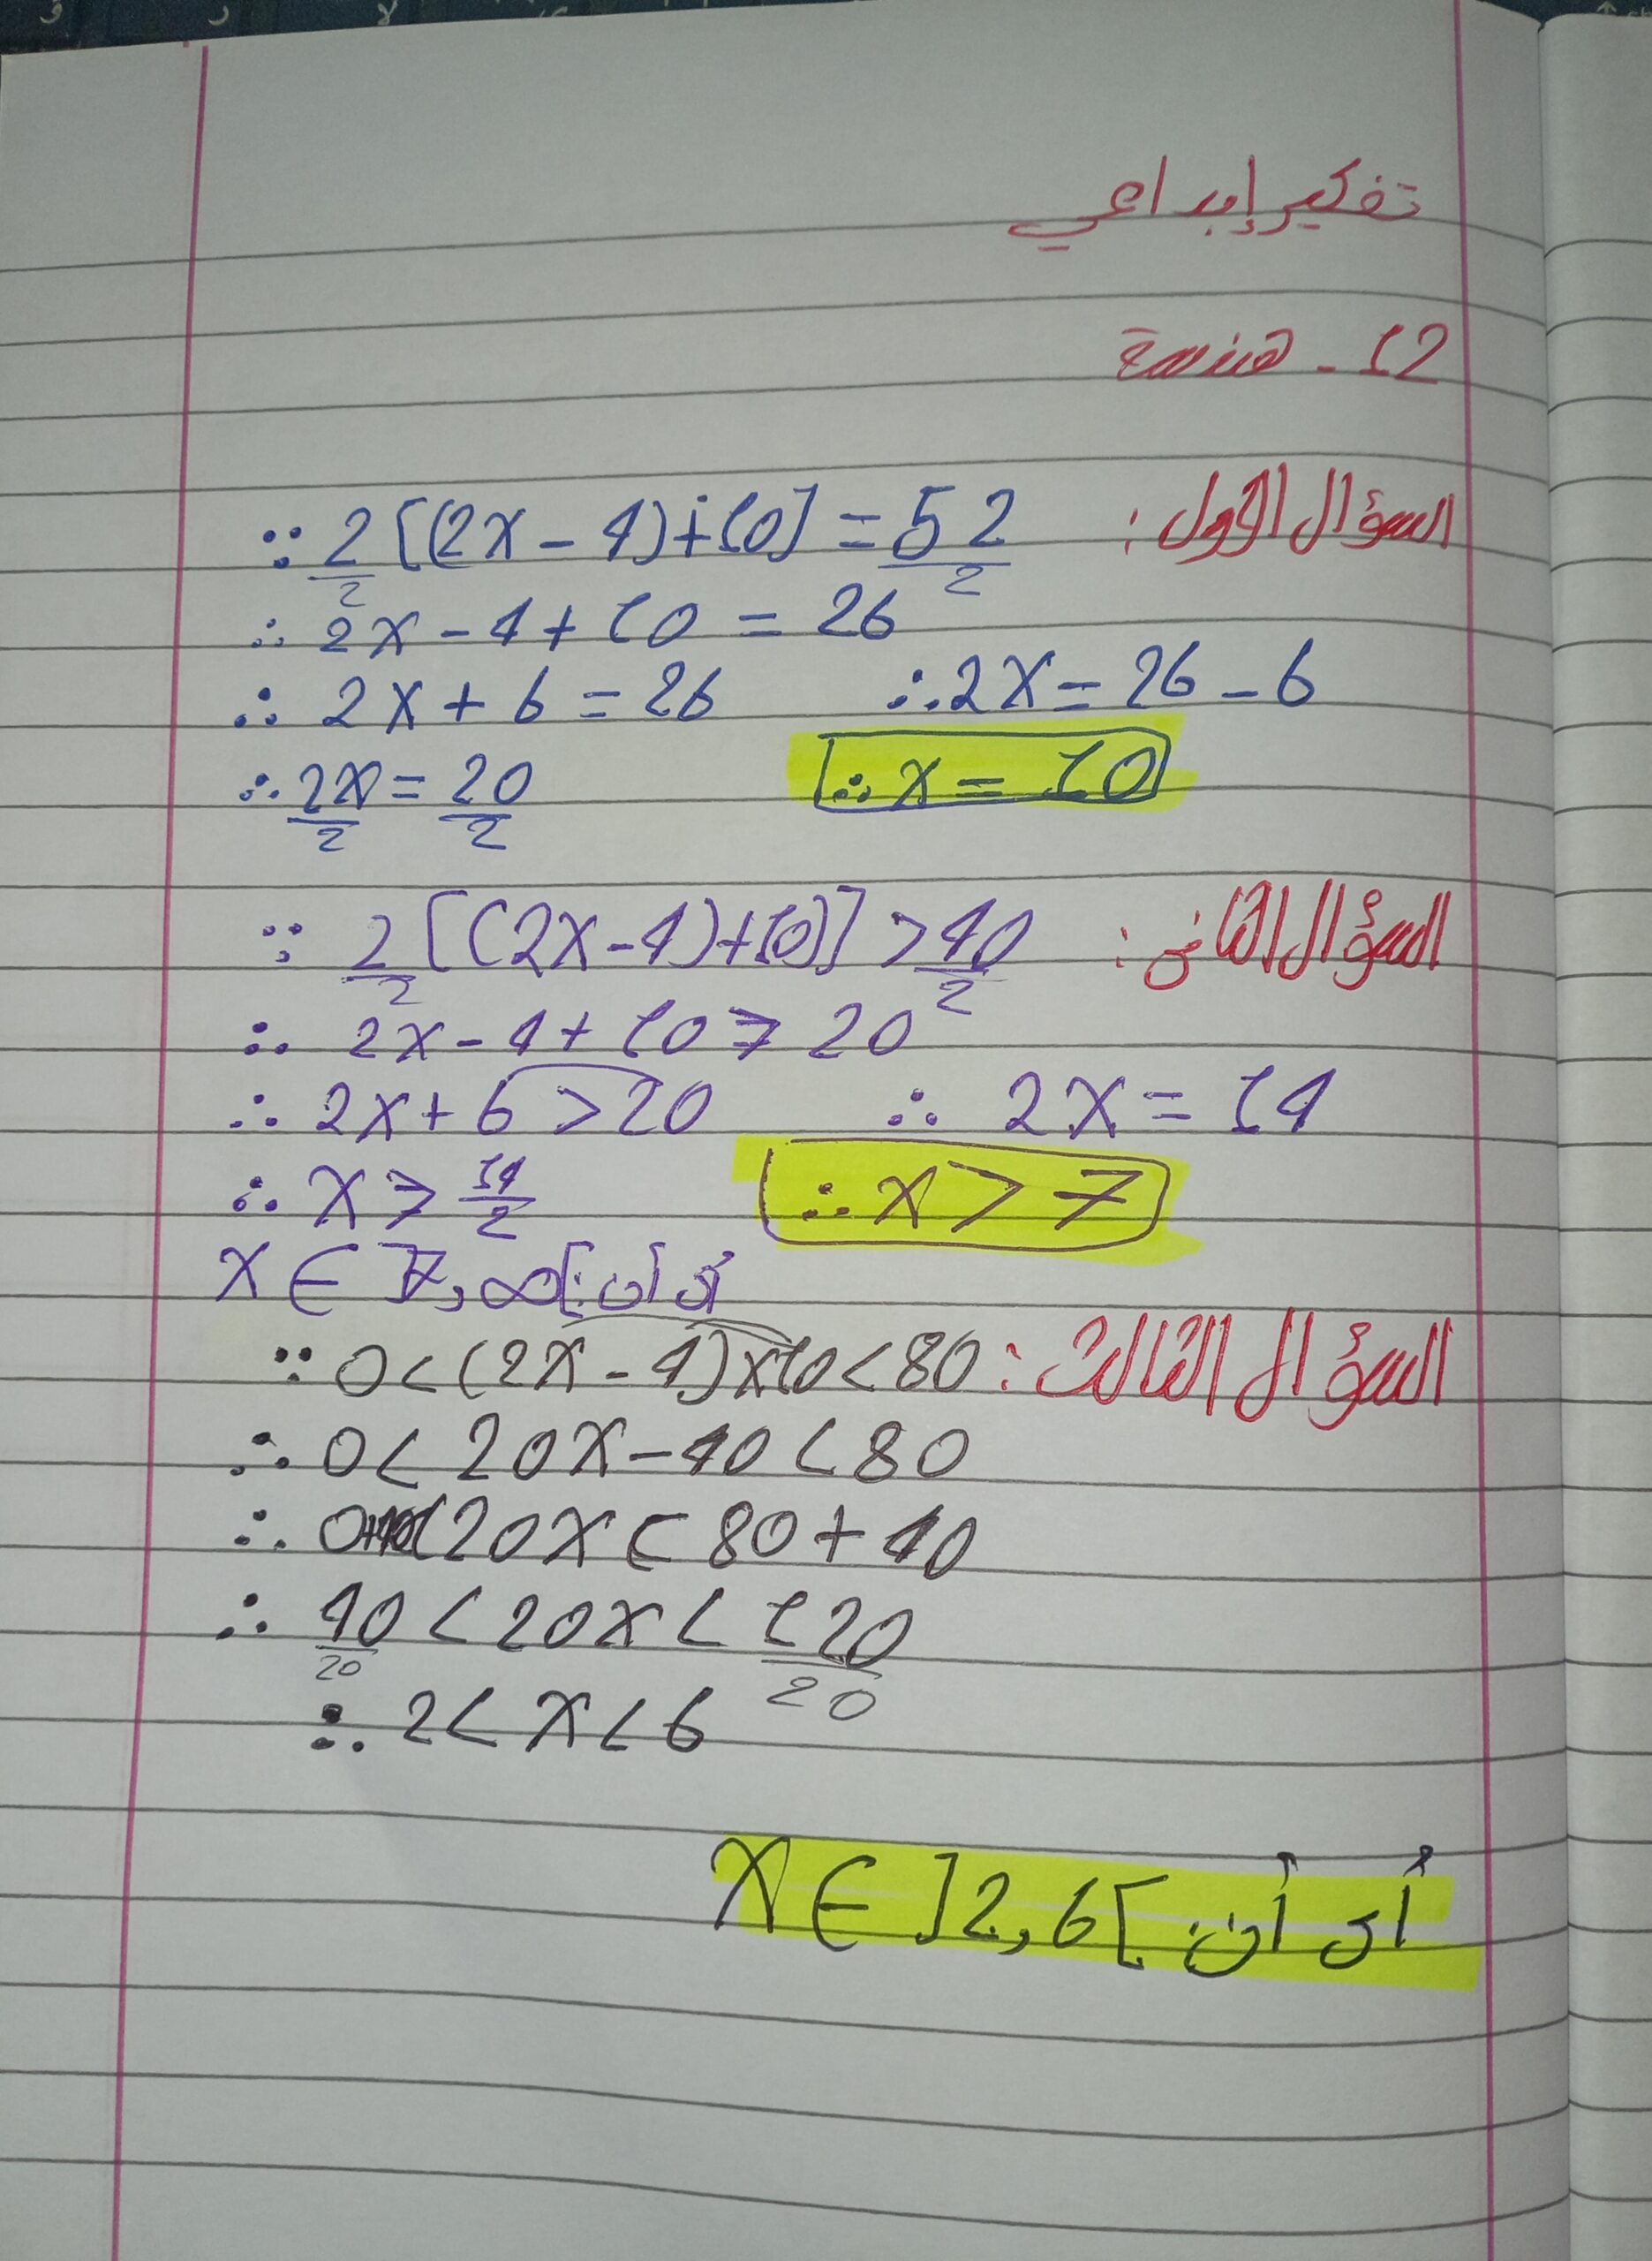 تفكير إبداعي
12 - هندسة
السؤال الأول:
∵ 2/2 [(2x - 4) + 10] = 52/2
∴ 2x - 4 + 10 = 26
∴ 2x + 6 = 26 ∴ 2x = 26 - 6
∴ 2x/2 = 20/2 ∴ x = 10
السؤال الثانى:
∵ 2/2 [(2x - 4) + 10] > 40/2
∴ 2x - 4 + 10 > 20
∴ 2x + 6 > 20 ∴ 2x = 14
∴ x > 14/2 ∴ x > 7
أى أن: x ∈ ]7, ∞[
السؤال الثالث:
∵ 0 < (2x - 4) x 10 < 80
∴ 0 < 20x - 40 < 80
∴ 0+40 < 20x < 80 + 40
∴ 40/20 < 20x < 120/20
∴ 2 < x < 6
أى أن x ∈ ]2, 6[